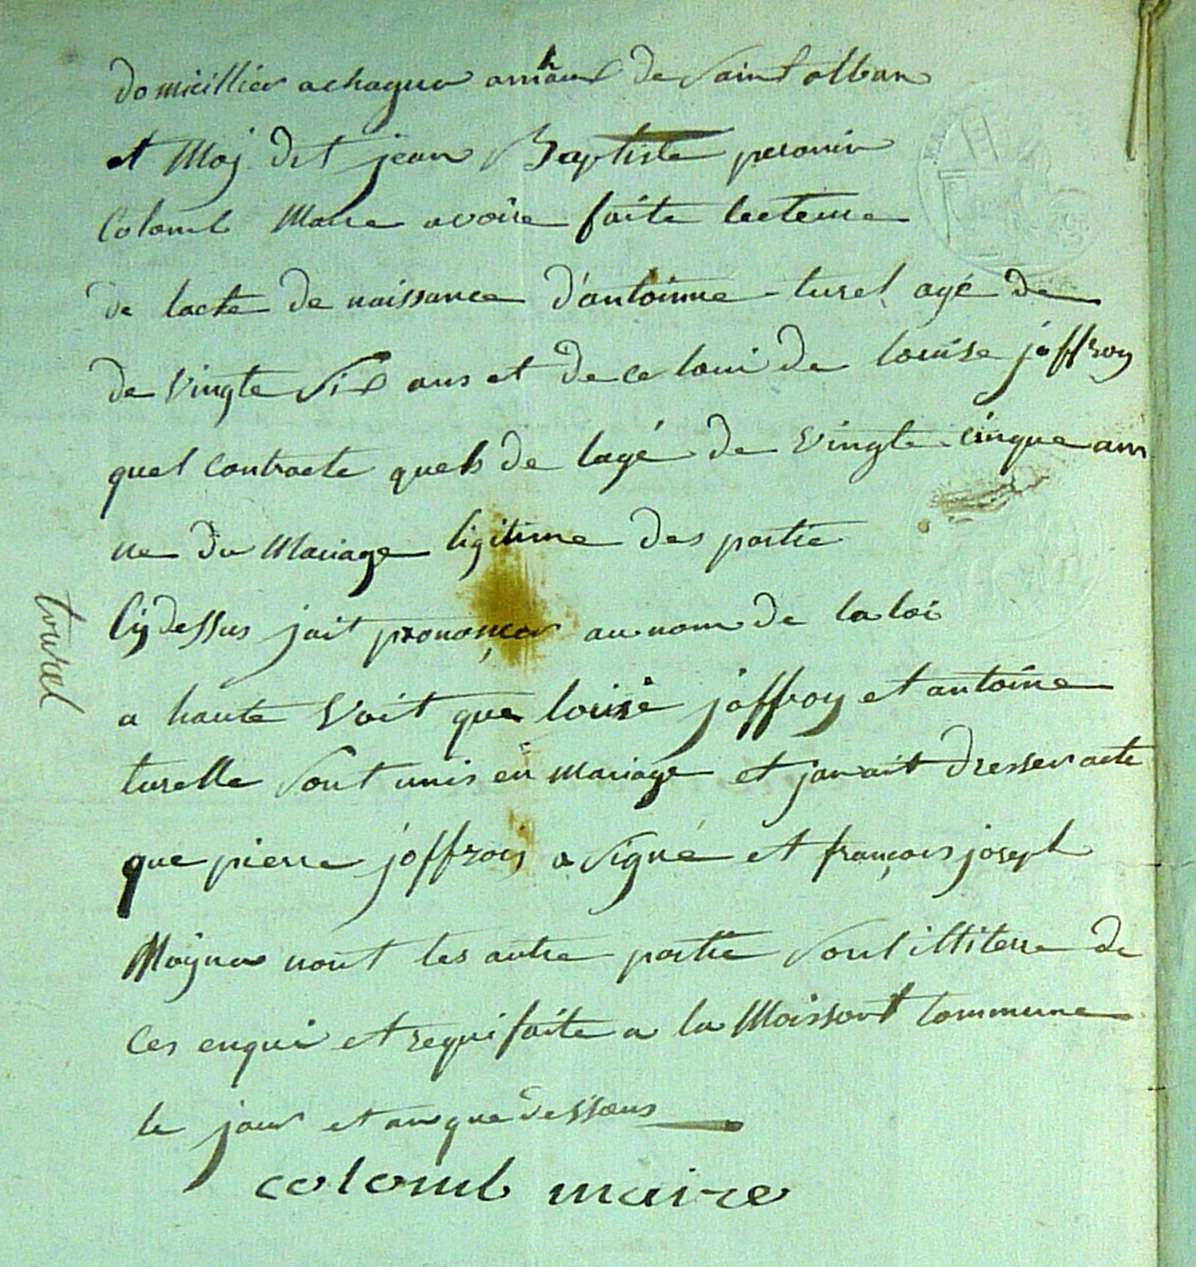 domicillier a chaque amhaux de saint alban
et Moj dit jean Baptiste peronin
Colomb Maire avoire faite lecteure
de lacte de naissance d'antoinne turel agé de
de vingte six ans et de ce loui de louise joffroy
quel contracte quels de lagé de vingte cinque ans
ne du Mariage ligitime des partie
Cy dessus jait prononçer au nom de la loi
a haute Voit que louise joffroy et antoine
turelle sont unis en mariage et jan ait dresser acte
que pierre joffrois a signé et françois joseph
nont les autre partie sont illitere de
ces enqui et requi faite a la Moissont Commune
le jour et an que dessous
colomb maire
tourel